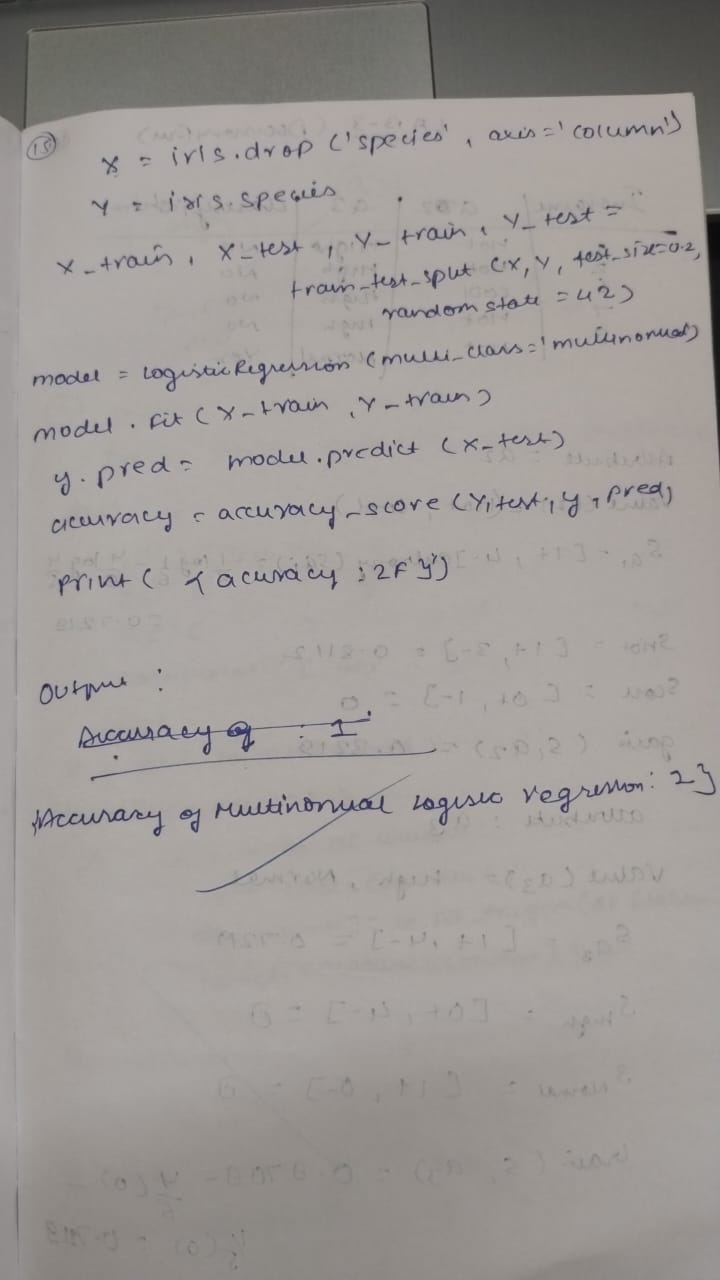 15
X = iris.drop ('species', axis='column')
Y = iris.species
X_train, X_test, Y_train, Y_test =
train_test_split (X, Y, test_size=0.2,
random state = 42)
model = LogisticRegression (multi_class='multinomial)
model . fit (X_train, Y_train)
y. pred = model.predict (X_test)
accuracy = accuracy_score (Y,test, y, pred)
print ( { acuracy : 2f'}')
Output :
Accuracy of : 1
Accuracy of Multinomial Logistic regression: 1}